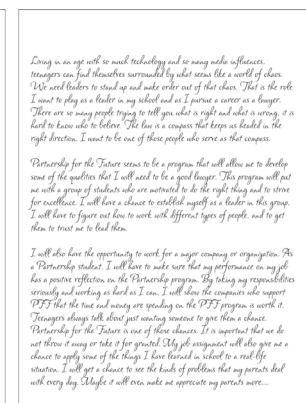 Living in an age with so much technology and so many media influences,
teenagers can find themselves surrounded by what seems like a world of chaos.
We need leaders to stand up and make order out of that chaos. That is the role
I want to play as a leader in my school and as I pursue a career as a lawyer.
There are so many people trying to tell you what is right and what is wrong, it is
hard to know who to believe. The law is a compass that keeps us headed in the
right direction. I want to be one of those people who serve as that compass.
Partnership for the Future seems to be a program that will allow me to develop
some of the qualities that I will need to be a good lawyer. This program will put
me with a group of students who are motivated to do the right thing and to strive
for excellence. I will have a chance to establish myself as a leader in this group.
I will have to figure out how to work with different types of people, and to get
them to trust me to lead them.
I will also have the opportunity to work for a major company or organization. As
a Partnership student, I will have to make sure that my performance on my job
has a positive reflection on the Partnership program. By taking my responsibilities
seriously and working as hard as I can, I will show the companies who support
PFF that the time and money are spending on the PFF program is worth it.
Teenagers always talk about just wanting someone to give them a chance.
Partnership for the Future is one of those chances. It is important that we do
not throw it away or take it for granted. My job assignment will also give me a
chance to apply some of the things I have learned in school to a real-life
situation. I will get a chance to see the kinds of problems that my parents deal
with every day. Maybe it will even make me appreciate my parents more....